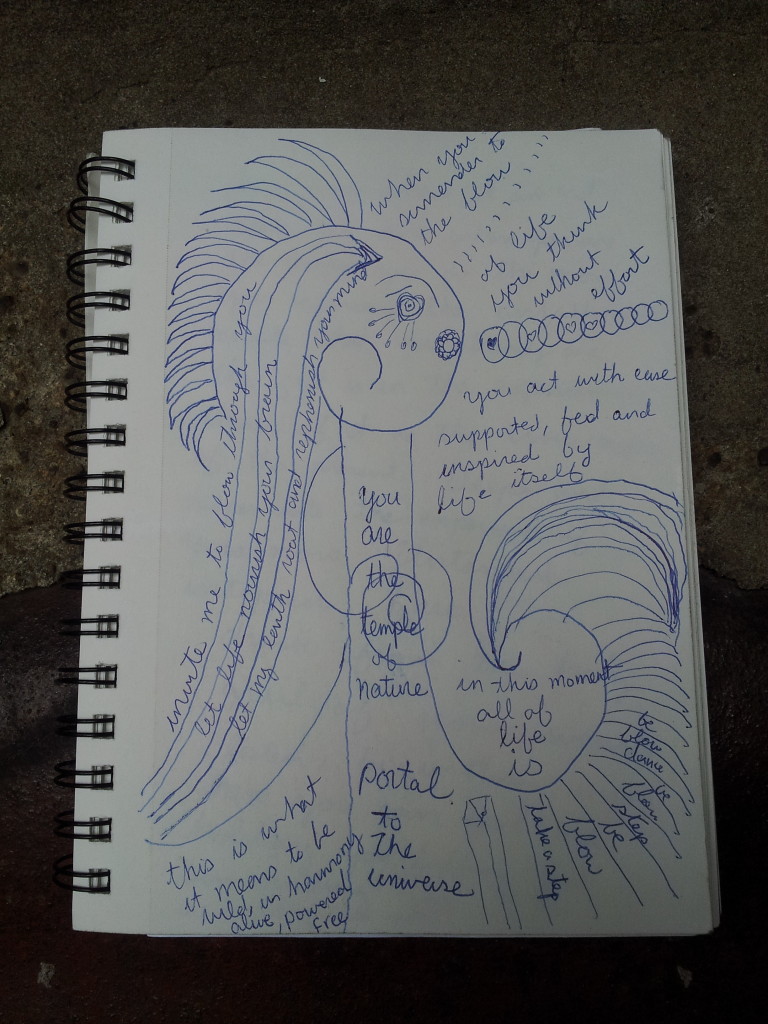 when you
surrender to
the flow
of life
you think
without
effort
you act with ease
supported, fed and
inspired by
life itself
invite me to flow through you
let life nourish your brain
let my earth root and replenish your mind
you
are
the
temple
of
nature
portal
to
the
universe
in this moment
all of
life
is
be
flow
dance be
flow
step
be
flow
take a step
this is what
it means to be
wild, in harmony
alive, powered
free